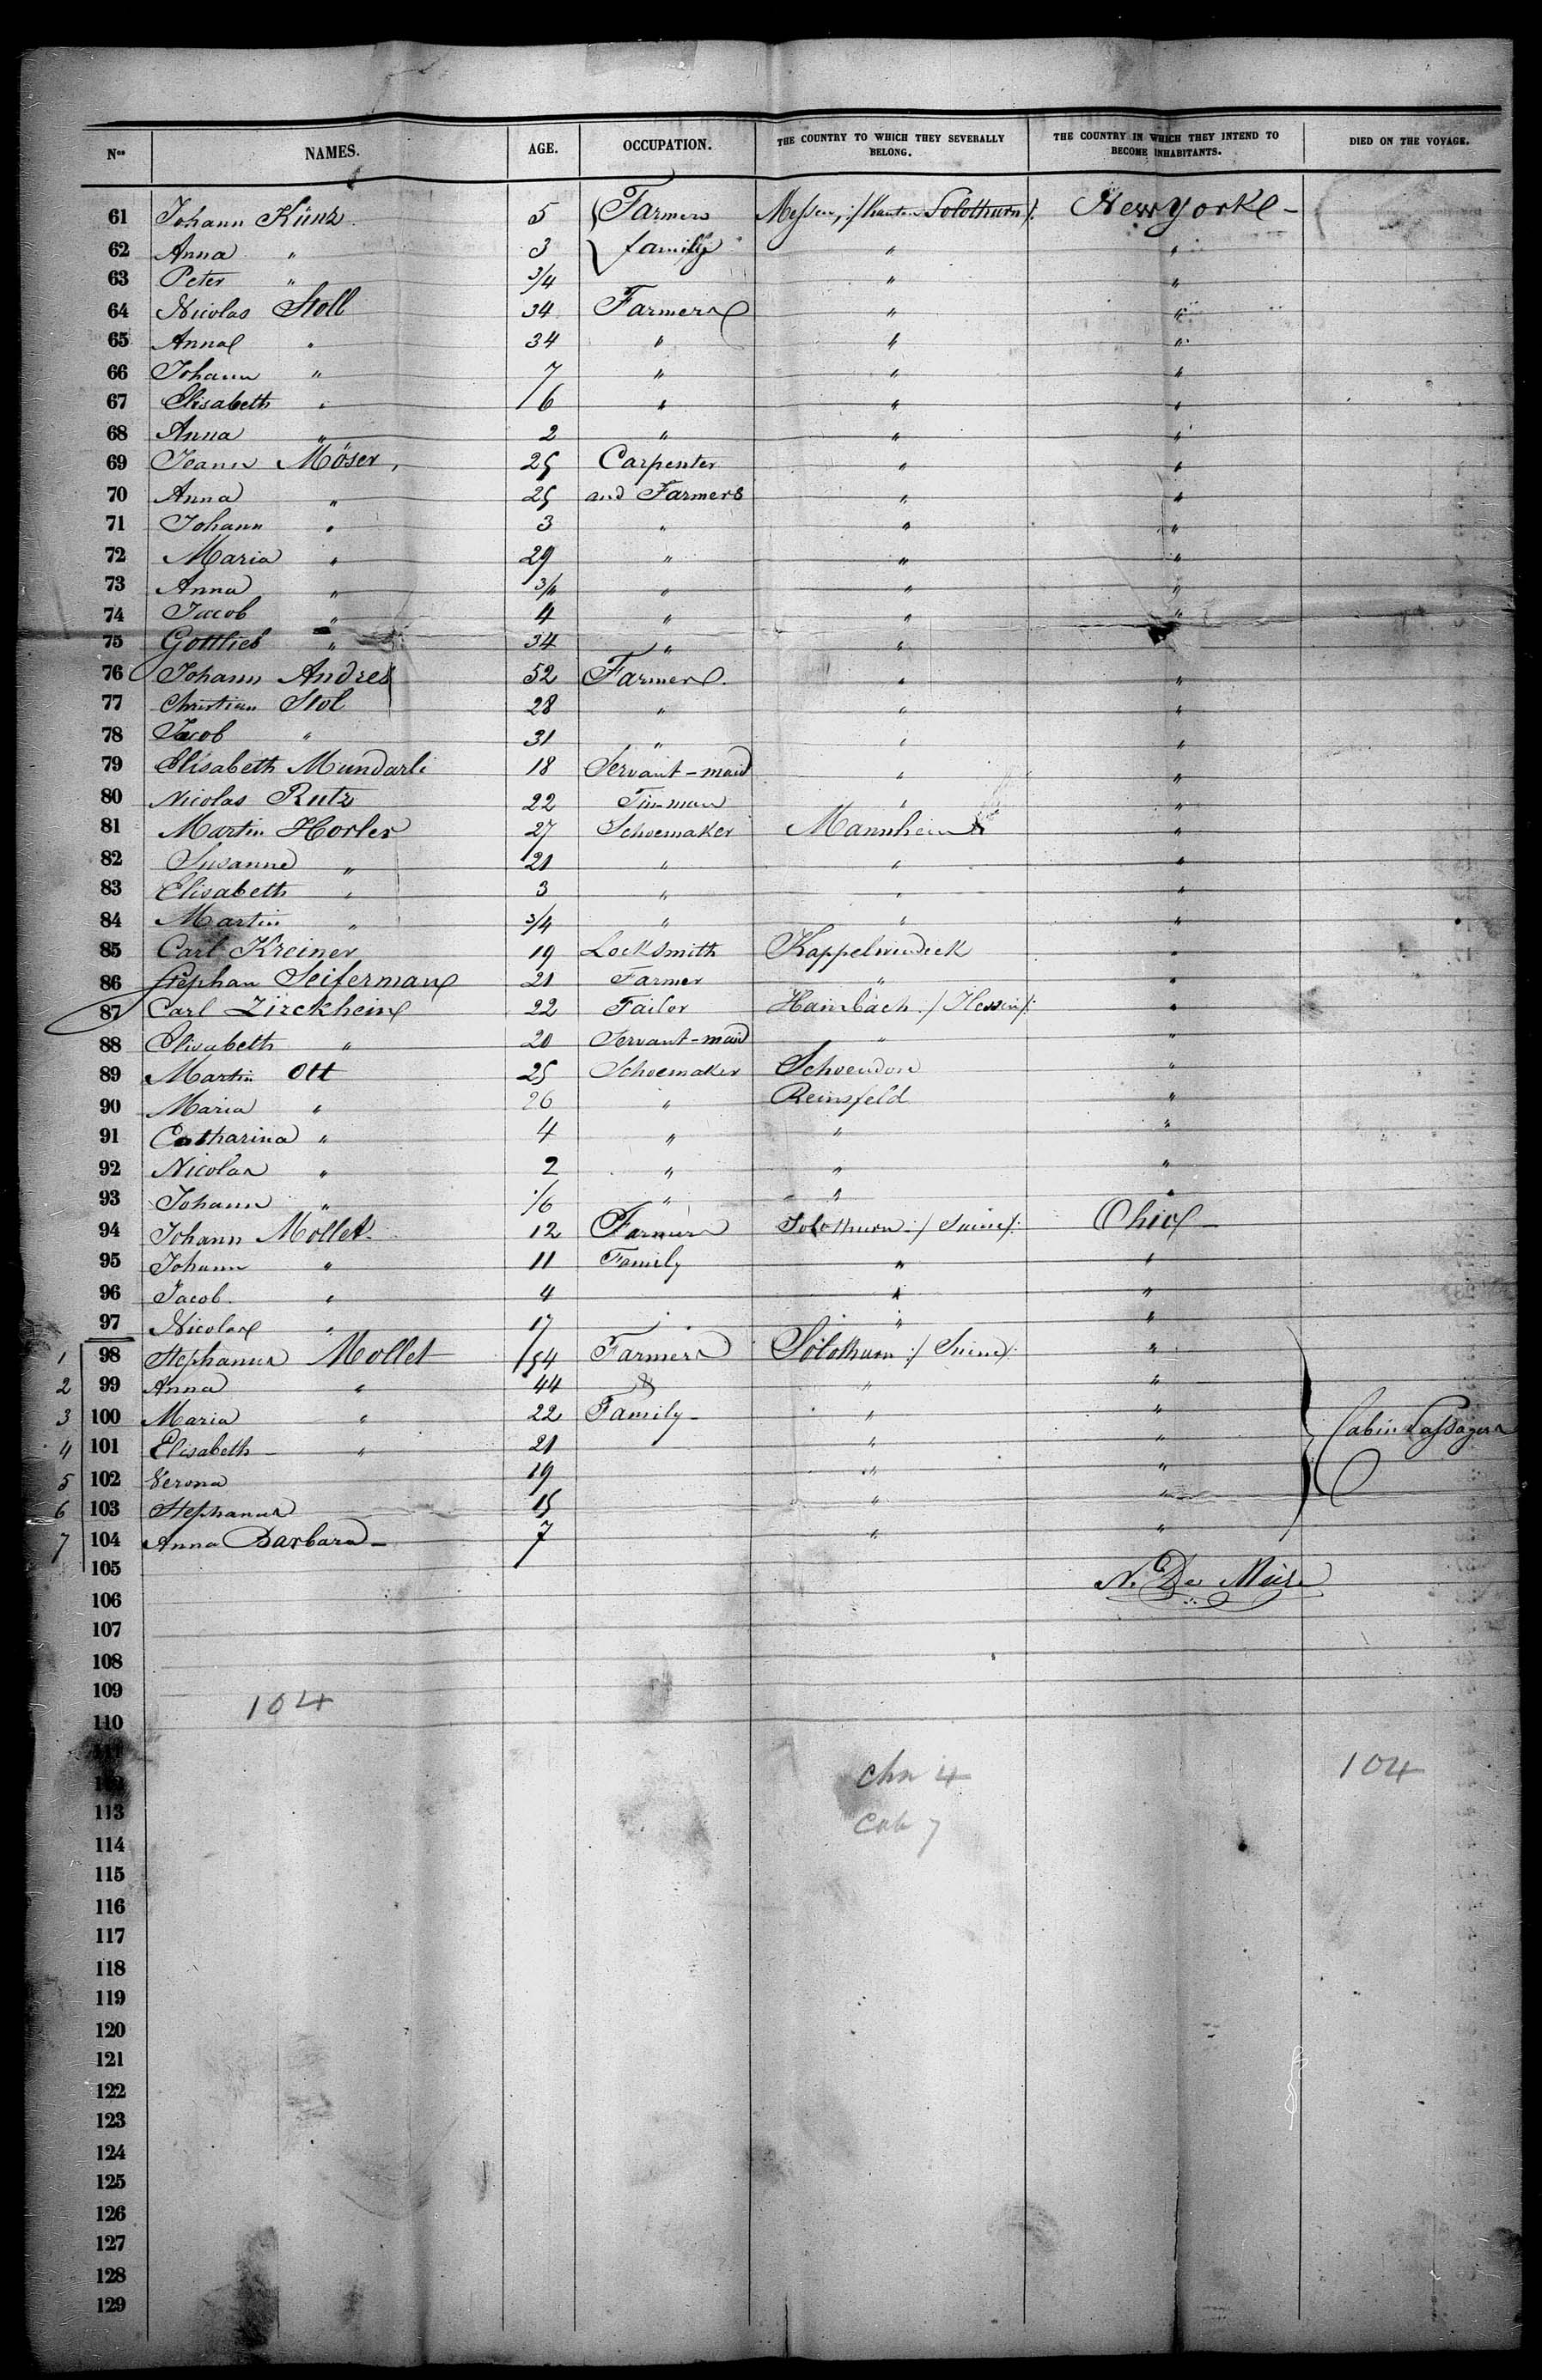 Nos NAMES. AGE. OCCUPATION. THE COUNTRY TO WHICH THEY SEVERALLY BELONG. THE COUNTRY IN WHICH THEY INTEND TO BECOME INHABITANTS. DIED ON THE VOYAGE.
61 Johann Künz 5 Farmers Messen, :/ Kanton Solothurn /: New Yorke -
62 Anna " 3 family " "
63 Peter " 3/4 " "
64 Nicolas Stoll 34 Farmers " "
65 Anna " 34 " " "
66 Johann " 7 " " "
67 Elisabeth " 6 " " "
68 Anna " 2 " " "
69 Joann Möser, 25 Carpenter " "
70 Anna " 25 and Farmers " "
71 Johann " 3 " " "
72 Maria " 29 " " "
73 Anna " 3/4 " " "
74 Jacob " 4 " " "
75 Gottlieb " 34 " "
76 Johann Andres 52 Farmer " "
77 Christian Stol 28 " " "
78 Jacob " 31 " " "
79 Elisabeth Mundarli 18 Servant-maid " "
80 Nicolas Rutz 22 Tinman " "
81 Martin Horler 27 Schoemaker Mannheim "
82 Susanne " 21 " " "
83 Elisabeth " 3 " " "
84 Martin " 3/4 " " "
85 Carl Kreiner 19 Locksmith Kappelwindeck "
86 Stephan Seiferman 21 Farmer " "
87 Carl Zirckhein 22 Tailor Hainbach :/ Hessen /: "
88 Elisabeth " 20 Servant-maid " "
89 Martin Ott 25 Schoemaker "
90 Maria " 26 " Reinsfeld "
91 Catharina " 4 " " "
92 Nicolas " 2 " " "
93 Johann " /6 " " "
94 Johann Mollet 12 Farmers Solothurn :/ /: Ohio -
95 Johann " 11 Family " "
96 Jacob " 4 " "
97 Nicolas " 17 " "
1 98 Stephanus Mollet 54 Farmers Solothurn :/ /: "
2 99 Anna " 44 & " "
3 100 Maria " 22 Family - " "
4 101 Elisabeth - " 21 " " Cabin Passagers
5 102 Verona 19 " "
6 103 Stephanus 15 " "
7 104 Anna Barbara - 7 " "
105
N. De
106
107
108
109
104
110
104
113
cab 7
114
115
116
117
118
119
120
121
122
123
124
125
126
127
128
129